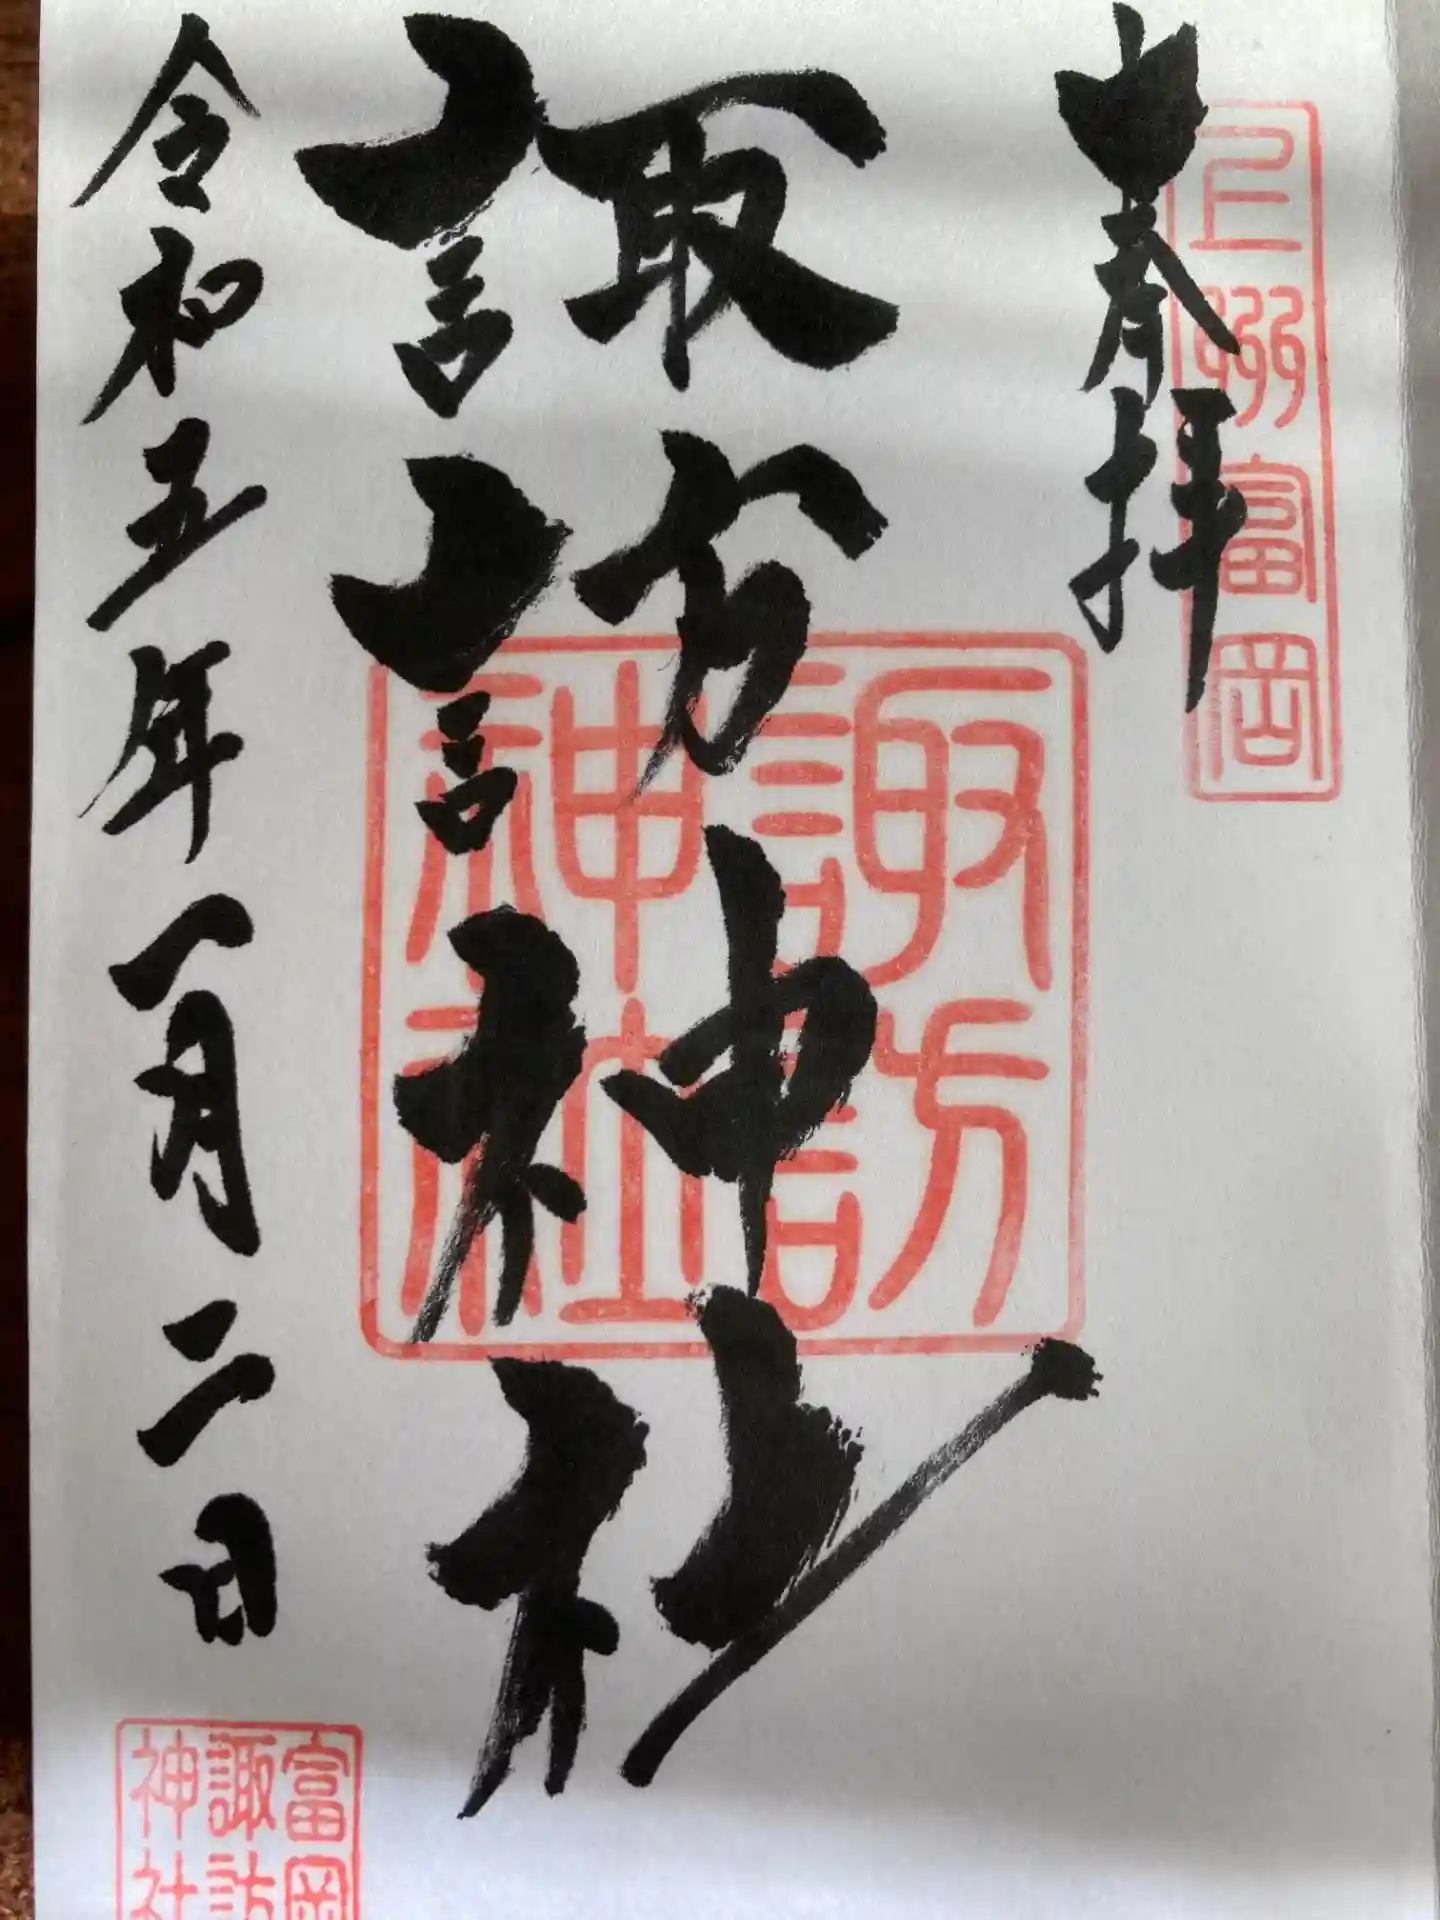 奉拝
上州富岡
諏訪神社
諏訪
神社
令和五年一月二日
富岡
諏訪
神社